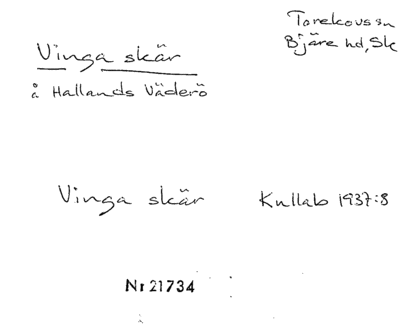 Vinga skär
Torekovs sn
Bjäre hd, Sk
å Hallands Väderö
Vinga skär Kullab 1937:8
Nr 21734